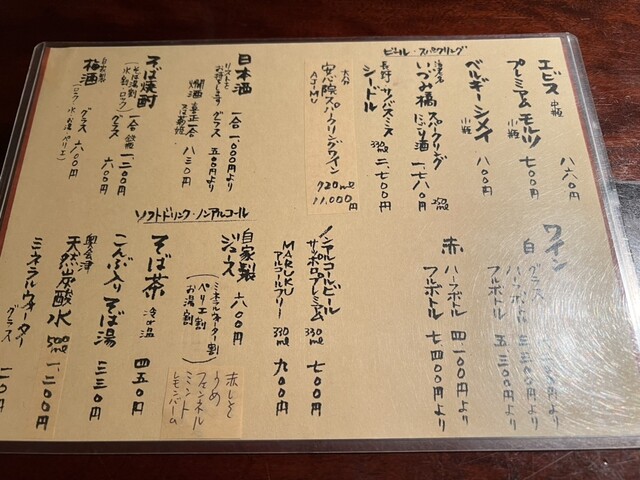 ビール・スパークリング
エビス 中瓶 八六〇円
プレミアムモルツ 小瓶 七〇〇円
ベルギー シメイ 小瓶 八〇〇円
いづみ橋 スパークリング
にごり酒 250ml 一、七八〇円
長野・サノバスミス
シードル 330ml 二、七〇〇円
大分
安心院スパークリングワイン
AJIMU
720ml
11,000円
日本酒 一合 一、〇〇〇円より
リストを
お持ちします グラス 五〇〇円より
燗酒 喜正一合 八三〇円
そば焼酎 一合 一、二〇〇円
(そば湯割
水割・ロック) グラス 六〇〇円
自家製
梅酒 グラス 六〇〇円
ワイン
白 グラス
ハーフボトル
フルボトル
赤 ハーフボトル 四、一〇〇円より
フルボトル 七四〇〇円より
ソフトドリンク・ノンアルコール
ノンアルコールビール
サッポロプレミアム 330ml 七〇〇円
MARUKU
アルコールフリー 330ml 九〇〇円
自家製
ジュース 六〇〇円
(ミネラルウォーター割
ペリエ割
お湯割)
赤じそ
うめ
フェンネル
ミント
レモンバーム
そば茶 冷or温 四五〇円
こんぶ入り そば湯 三三〇円
奥会津
天然炭酸水 500ml 一、二〇〇円
ミネラルウォーター
グラス